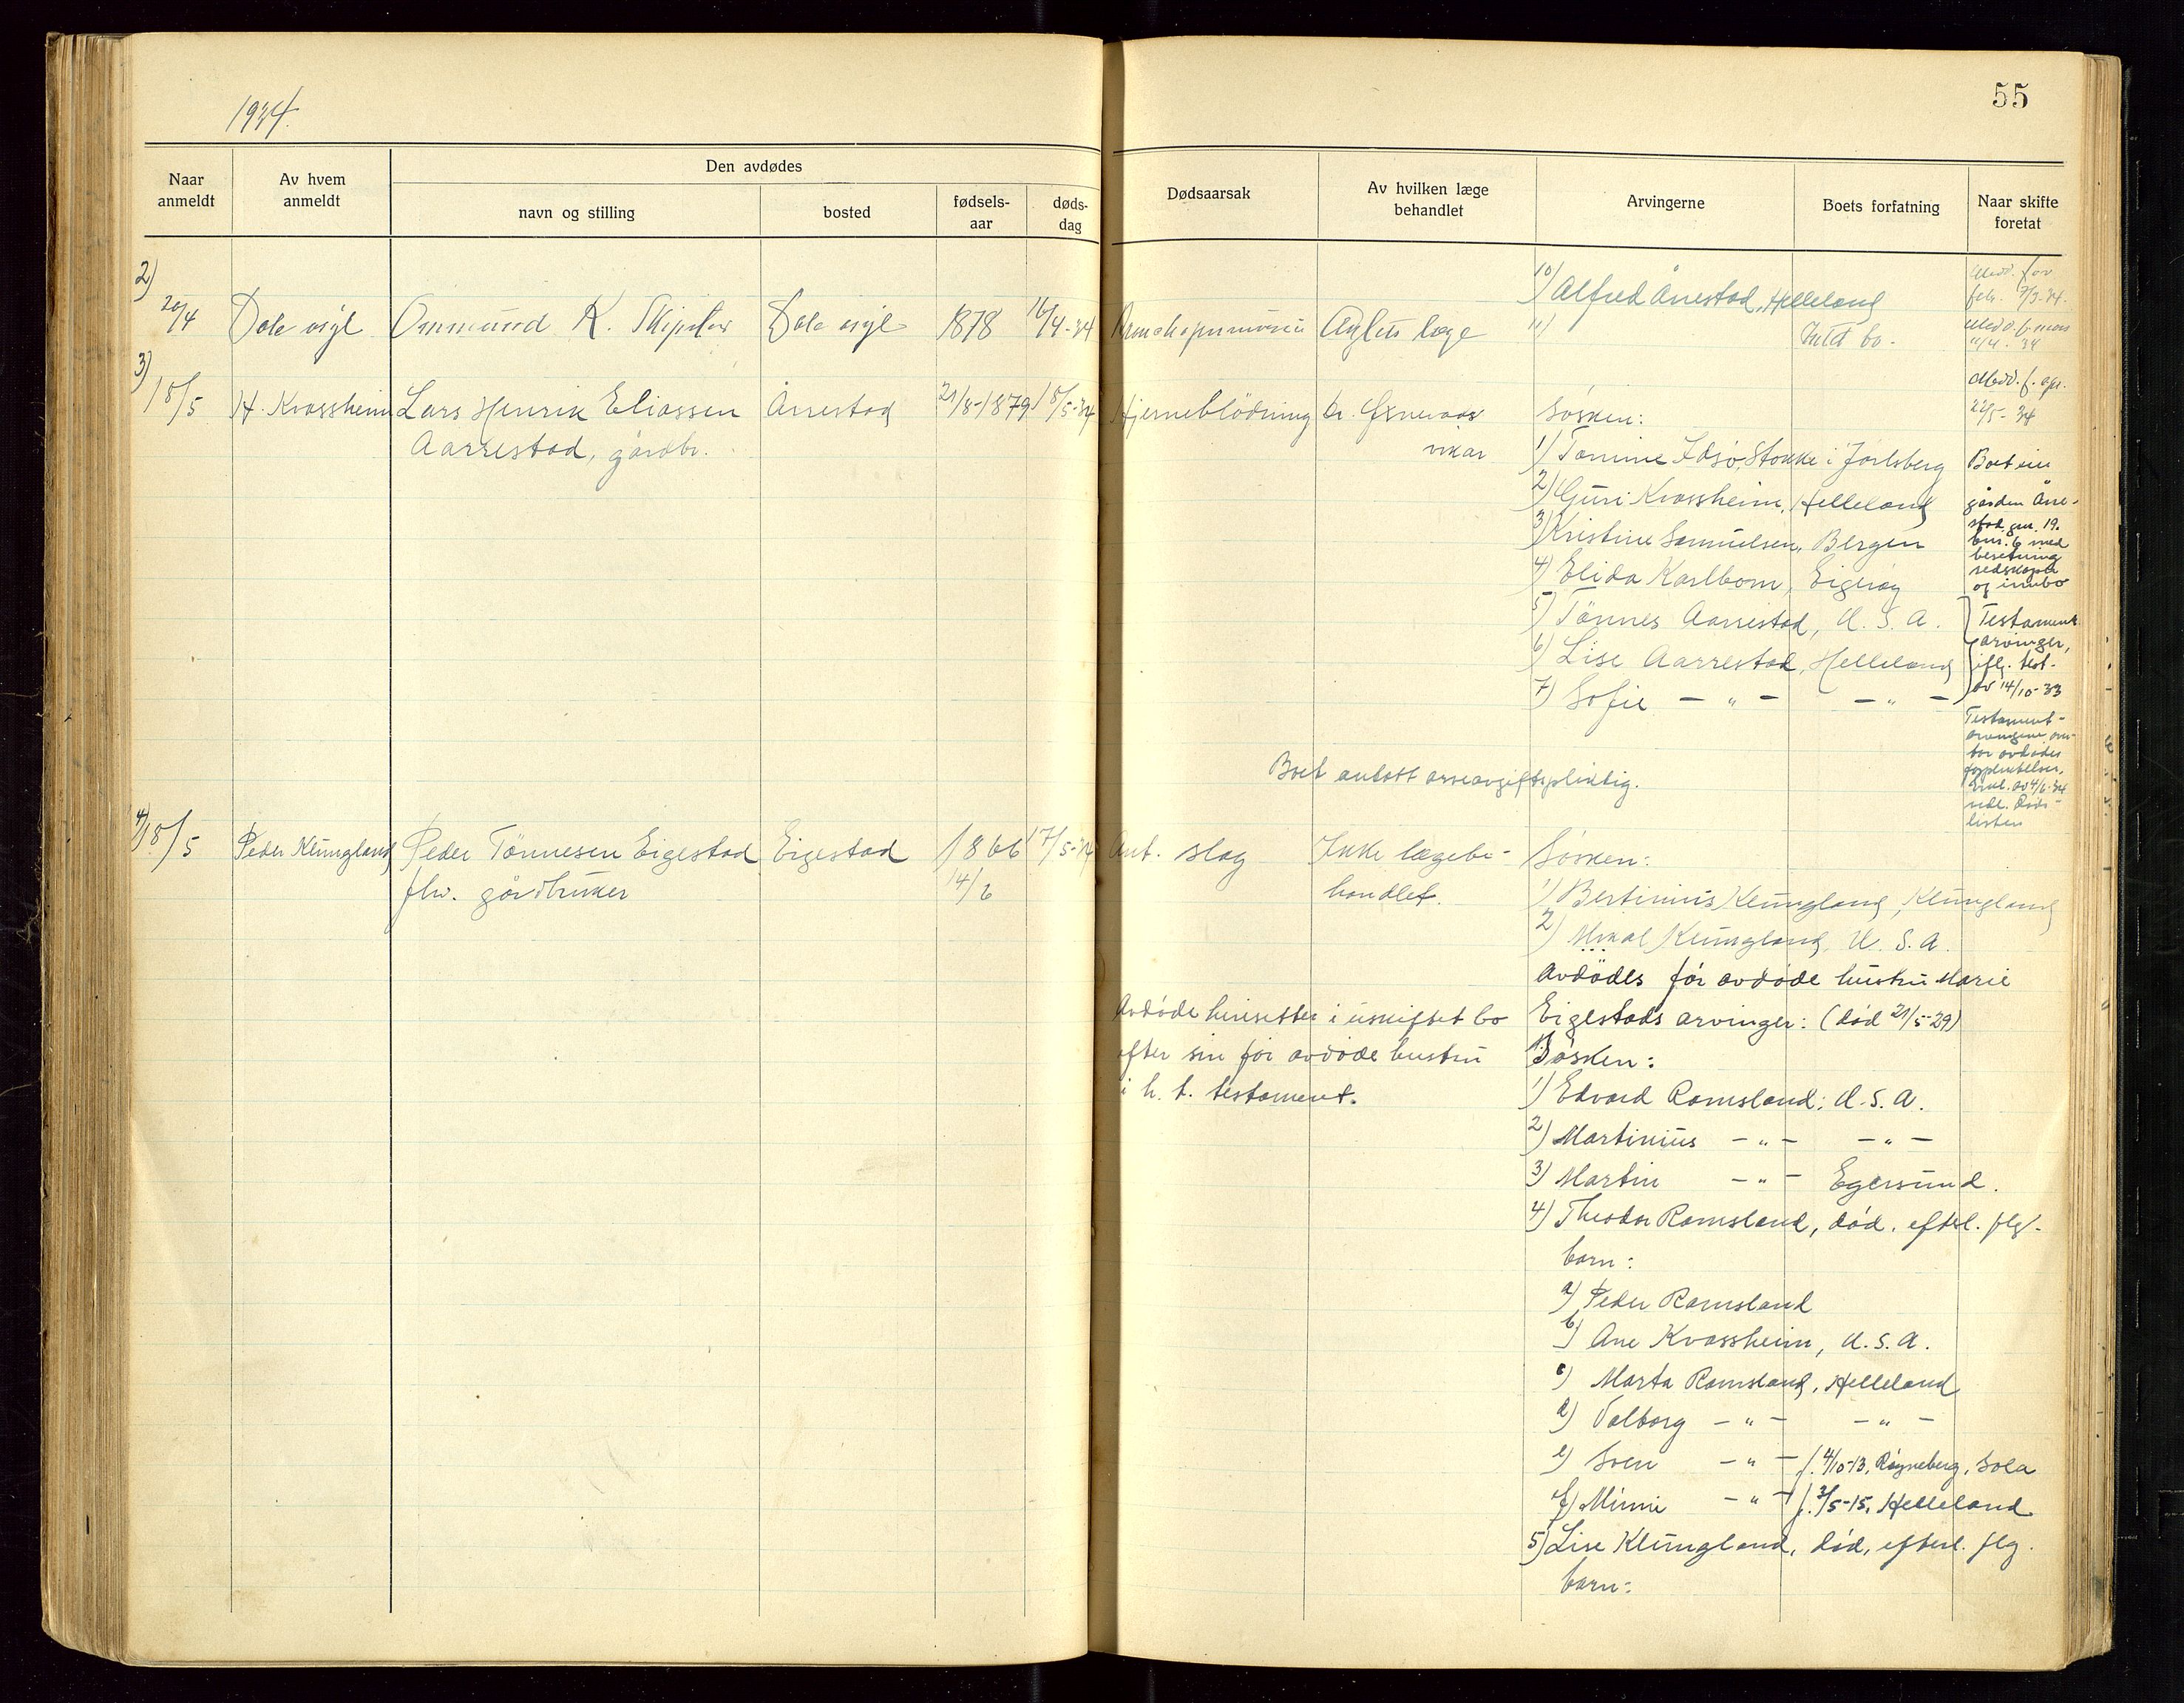 1934.
55
Naar anmeldt
Av hvem anmeldt
Den avdødes
navn og stilling
bosted
fødsels-aar
døds-dag
Dødsaarsak
Av hvilken læge behandlet
Arvingerne
Boets forfatning
Naar skifte foretat
10) Alfred Årrestad, Helleland
Medd. for
febr. 7/3-34.
2) 20/4 Dale asyl Ommund K. Dale asyl 1878 16/4-34 Asylets læge 11) Intet bo.
Medd. f. mars
11/4. 34
Medd. f. apr.
22/5- 34
3) 18/5 H. Kvassheim Lars Henrik Eliassen Årrestad 21/8-1879 18/5-34 Hjerneblödning dr. vikar Søsken:
Aarrestad, gårdbr.
1) Tomine Idsø, Stokke i Jarlsberg
2) Guri Kvassheim, Helleland
3) Kristine Samuelsen, Bergen
4) Elida Karlbom, Eigerøy
5) Tönnes Aarrestad, U. S. A.
6) Lise Aarrestad, Helleland
7) Sofie — " — — " —
Boet eier
gården Årre-
stad gnr. 19.
bnr. 6 med
besetning
redskaper
og innbo
Testament
arvinger,
iflg. test.
av 14/10-33
Testament-
arvingene over-
tar avdødes
forpliktelser,
Erkl. av 4/6-34
vedl. døds-
listen
Boet antatt arveavgiftspliktig.
4) 18/5 Peder Klungland Peder Tönnesen Eigestad Eigestad 1866 17/5-34 Ant. slag Ikke lægebe- Søsken:
fhv. gårdbruker 14/2 handlet.
1) Bertinius Klungland, Klungland
2) Mikal Klungland, U. S. A.
Avdödes før avdøde hustru Marie
Avdøde hensetter i uskiftet bo Eigestads arvinger: (død 21/5-29)
efter sin før avdøde hustru Søsken:
i h. t. testament. 1) Edvard Ramsland: U. S. A.
2) Martinius — " — — " —
3) Martin — " — Egersund.
4) Theodor Ramsland, død. efterl. flg.
barn:
a) Peder Ramsland
b) Ane Kvassheim, U. S. A.
c) Marta Ramsland, Helleland
d) Valborg — " — — " —
e) Sven — " — f. 4/10-13, Røyneberg, Sola
f) Minni — " — f. 3/5-15, Helleland
5) Lise Klungland, død, efterl. flg.
barn: